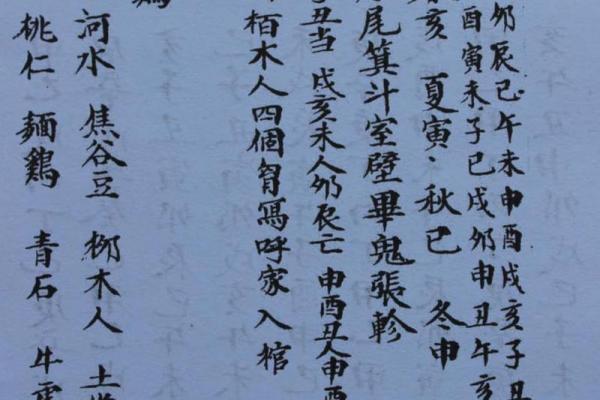 夘辰巳午未申酉戌亥子丑
酉寅未子巳戌夘申丑午亥
亥 夏寅·秋巳 冬申
尾箕斗室壁畢鬼張軫
丑当 戌亥未人夘辰亡 申酉丑人申酉
栢木人四個 寫呼家入棺
河水 焦谷豆 柳木人 土
桃仁 麵鷄 青石 牛